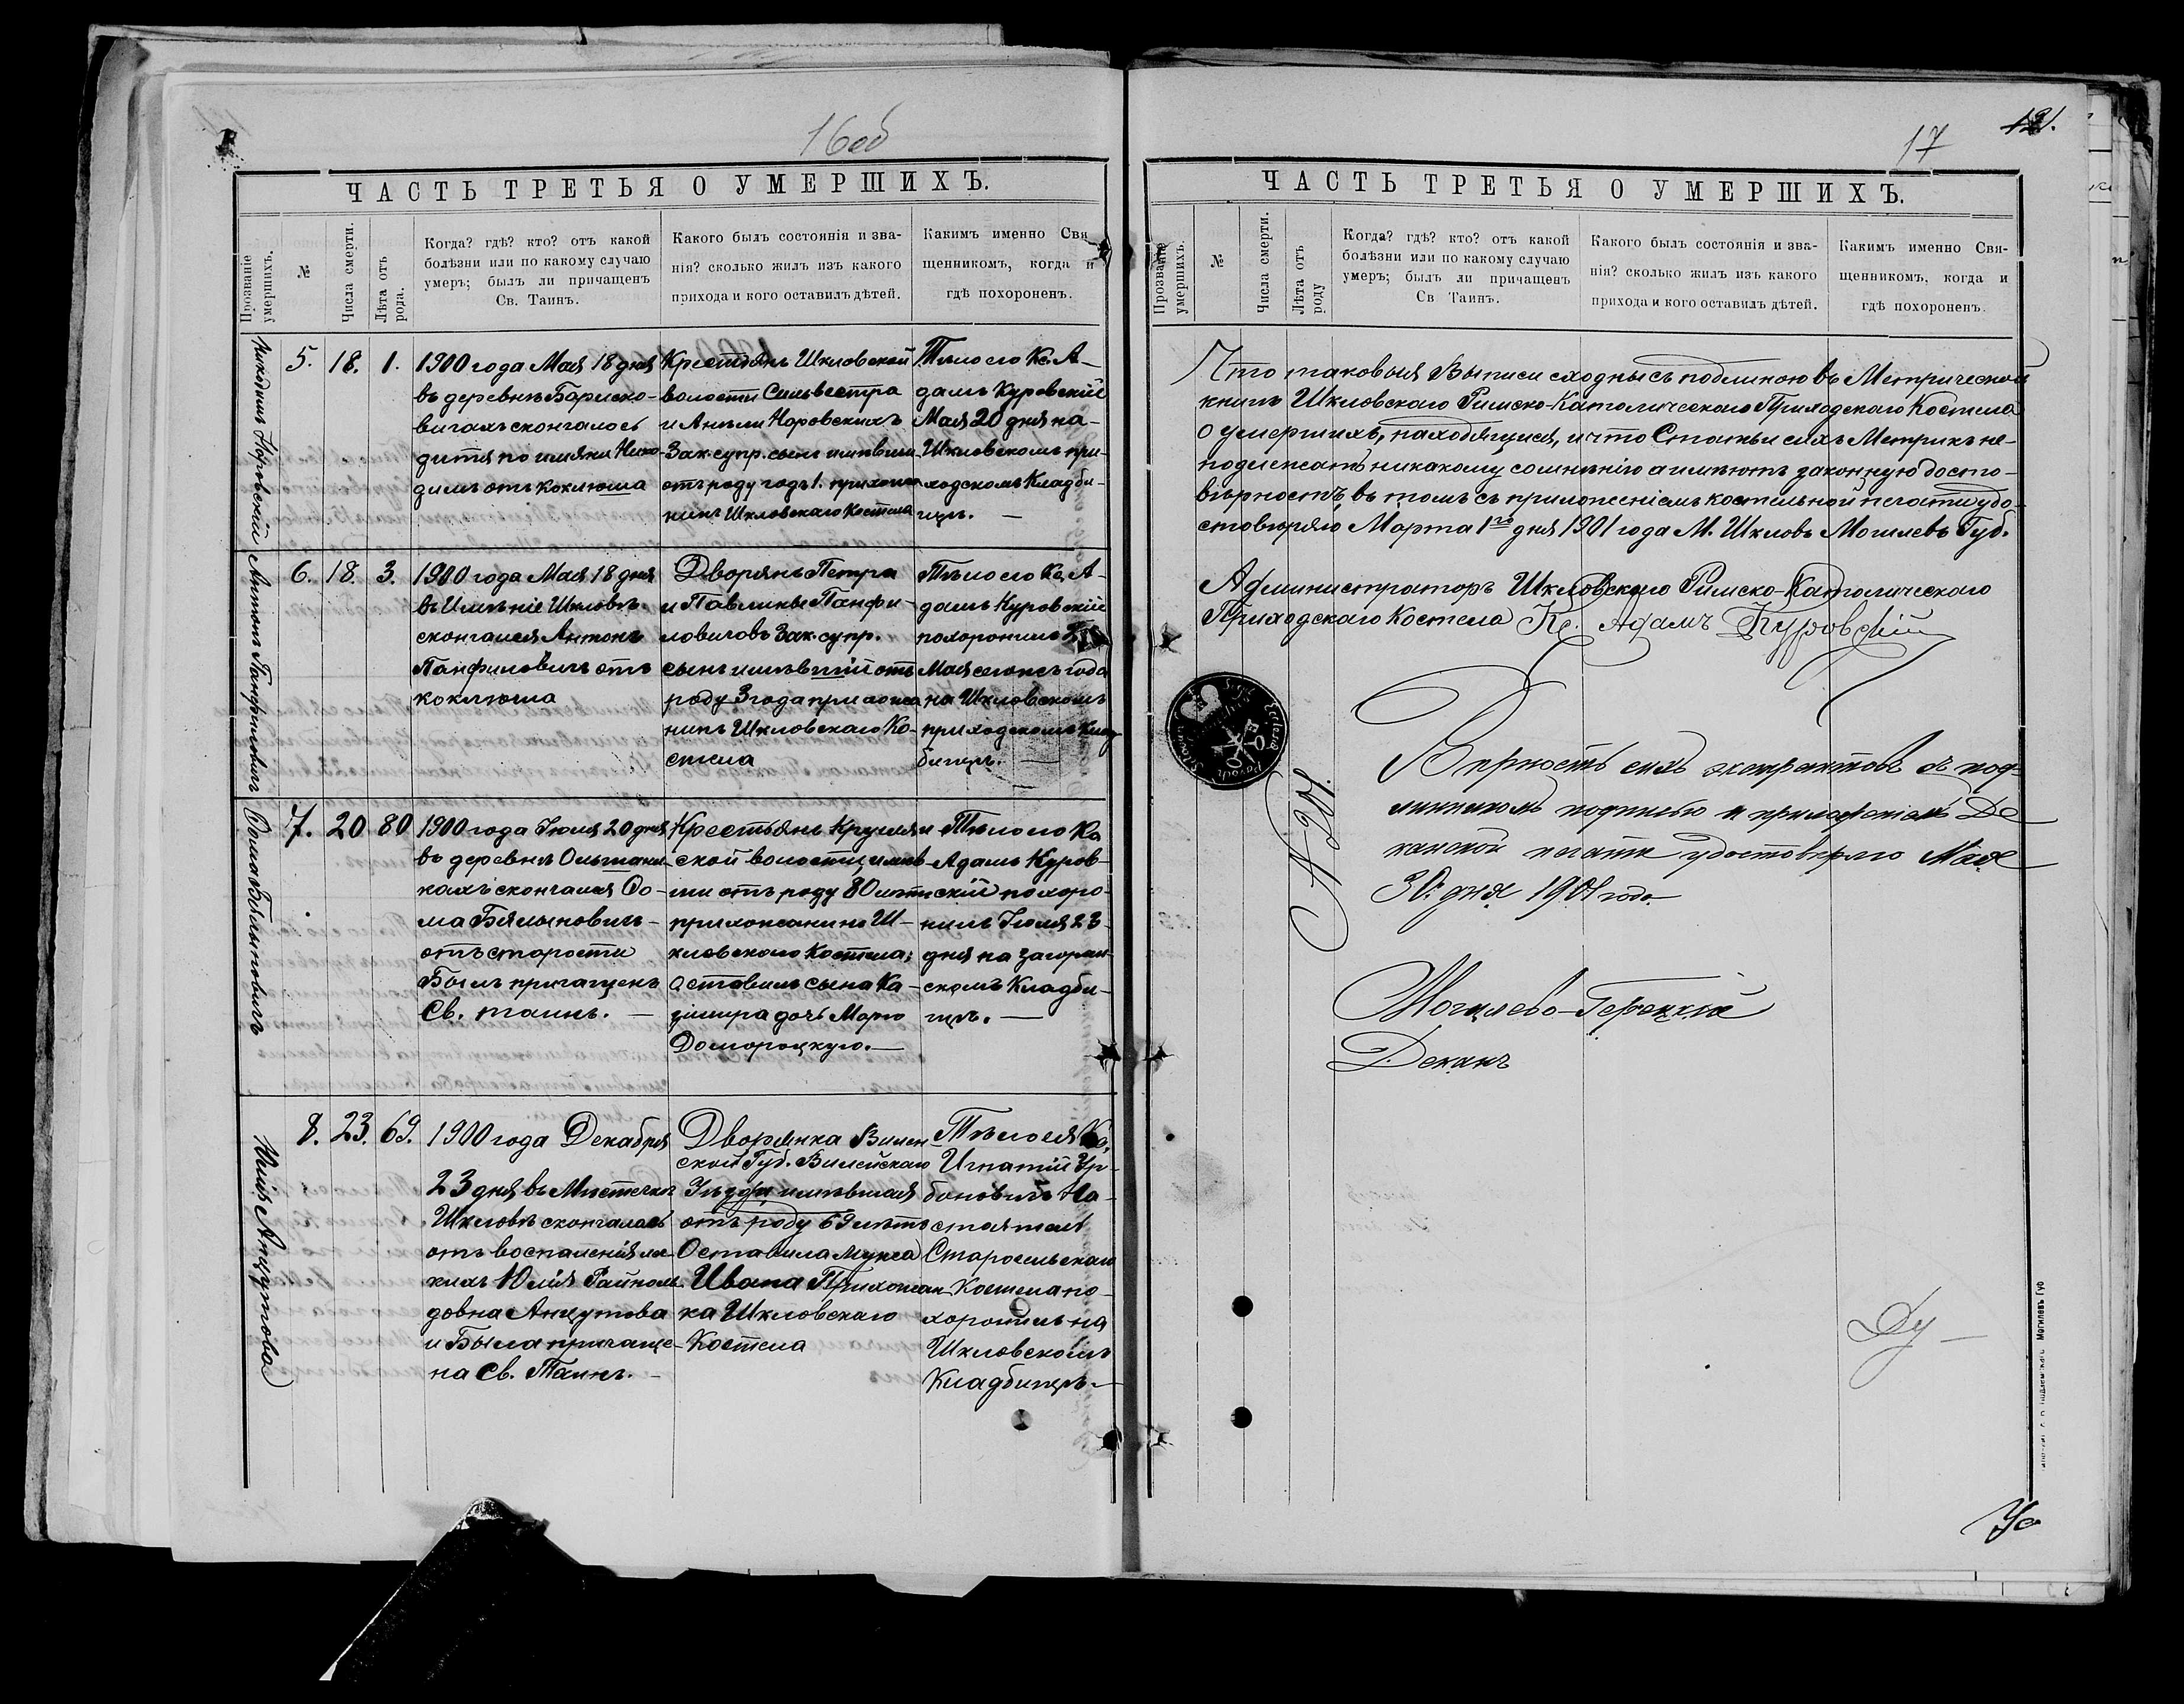 16об
ЧАСТЬ ТРЕТЬЯ О УМЕРШИХЪ.
Прозваніе умершихъ.
№
Числа смерти.
Лѣта отъ рода.
Когда? гдѣ? кто? отъ какой
болѣзни или по какому случаю
умеръ; былъ ли причащенъ
Св. Таинъ.
Какого былъ состоянія и зва-
нія? сколько жилъ изъ какого
прихода и кого оставилъ дѣтей.
Каким именно Свя
щенникомъ, когда и
гдѣ похороненъ.
Никодимъ Норовскій
5.
18.
1.
1900 года Мая 18 дня
въ деревнѣ Бориско-
вичахъ скончалось
дитя по имяни Нико-
димъ отъ коклюша
Крестьянъ Шкловской
волости Сильвестра
и Анѣли Норовскихъ
Зак. супр. сынъ имѣвши
отъ роду годъ 1. прихожа
нинъ Шкловскаго Костела
Тѣло его Кс. А-
дамъ Куровскій
Мая 20 дня на-
Шкловскомъ при-
ходскомъ Кладби-
щѣ. —
Антонъ Панфиловичъ
6.
18.
3.
1900 года Мая 18 дня
въ Имѣніе Шкловѣ.
скончался Антонъ
Панфиловичъ отъ
коклюша
Дворянъ Петра
и Павлины Панфи-
ловичовъ Зак. супр.
сынъ имѣвшій отъ
роду 3 года прихожа
нинъ Шкловскаго Ко-
стела
Тѣло его Кс. А-
дамъ Куровскій
похоронилъ
Мая сего же года
на Шкловскомъ
приходскомъ Клад
бищѣ. —
Фома Бялыновичъ
7.
20
80
1900 года Іюля 20 дня
въ деревнѣ Ольшани
кахъ скончался Фо-
ма Бялыновичъ-
отъ старости
Былъ причащенъ
Св. таинъ. —
Крестьянъ Круглян
ской волости, имѣв-
ши отъ роду 80 лѣтъ
прихожанинъ Ш-
кловскаго Костела;
Оставилъ сына Ка-
зимира дочь Марю
Доморацкую. —
Тѣло его Кс
Адамъ Куров-
скій похоро-
нилъ Іюля 23
дня на Загоран-
скомъ Кладби-
щѣ. —
Юлія Анцутова
8.
23.
69.
1900 года Декабря
23 дня въ Мѣстечкѣ
Шкловѣ скончалась
отъ воспаленія лег
кихъ Юлія Райноль-
довна Анцутова
и Была причаще-
на Св. Таинъ. -
Дворянка Вилен-
ской Губ. Вилейскаго
Уѣзда, имѣвшая
отъ роду 69 лѣтъ
Оставила мужа
Ивана Прихожан
ка Шкловскаго
Костела
Тѣло ея Кс.
Игнатій Ур-
бановичъ На-
стоятель
Старосельскаго
Костела по-
хоронилъ на
Шкловскомъ
Кладбищѣ. —
17
121.
ЧАСТЬ ТРЕТЬЯ О УМЕРШИХЪ.
Прозваніе умершихъ.
№
Числа смерти.
Лѣта отъ роду
Когда? гдѣ? кто? отъ какой
болѣзни или по какому случаю
умеръ; былъ ли причащенъ
Св Таинъ.
Какого былъ состоянія и зва-
нія? сколько жилъ изъ какого
прихода и кого оставилъ дѣтей.
Какимъ именно Свя-
щенникомъ, когда и
гдѣ похороненъ.
Что таковыя Выписи сходны съ подлинною въ Метрической
книгѣ Шкловскаго Римско-Католическаго Приходскаго Костела
о умершихъ, находящися, и что Статьи сихъ Метрикъ не-
подлежатъ никакому сомнѣнію а имѣютъ законную досто-
вѣрность, въ томъ съ приложеніемъ костельной печати удо-
стовѣряю Марта 1го дня 1901 года М. Шкловъ Могилевъ Губ.
Администраторъ Шкловскаго Римско-Католическаго
Приходскаго Костела Кс. Адамъ Куровскій
№ 201.
Вѣрность сихъ экстрактовъ съ под-
линникомъ подписью и приложеніемъ Де-
канской печати удостовѣряю Мая
30 дня 1901 года
Могилево-Горецкій
Деканъ